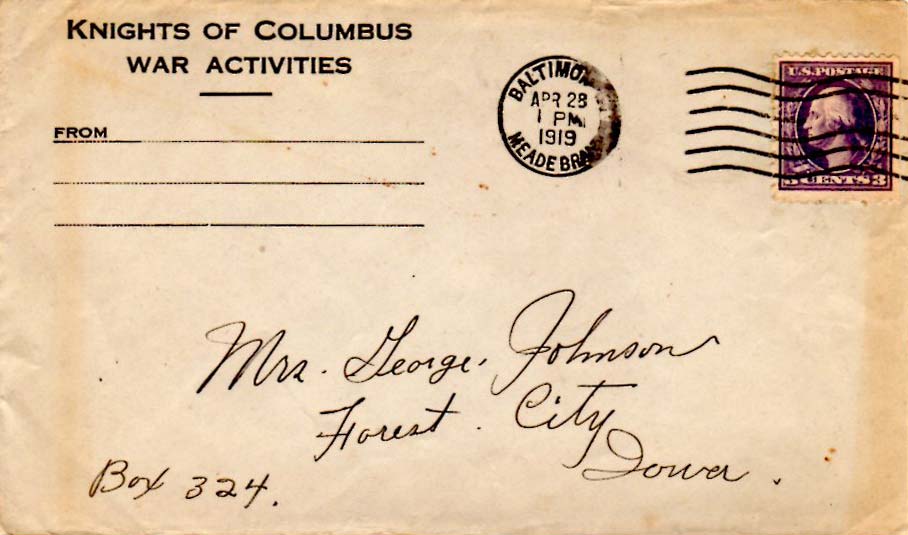 KNIGHTS OF COLUMBUS
WAR ACTIVITIES
FROM
BALTIMO
APR 28
1 PM
1919
MEADE BRAN
U.S. POSTAGE
3 CENTS 3
Mrs. George. Johnson
Forest. City
Iowa.
Box 324.